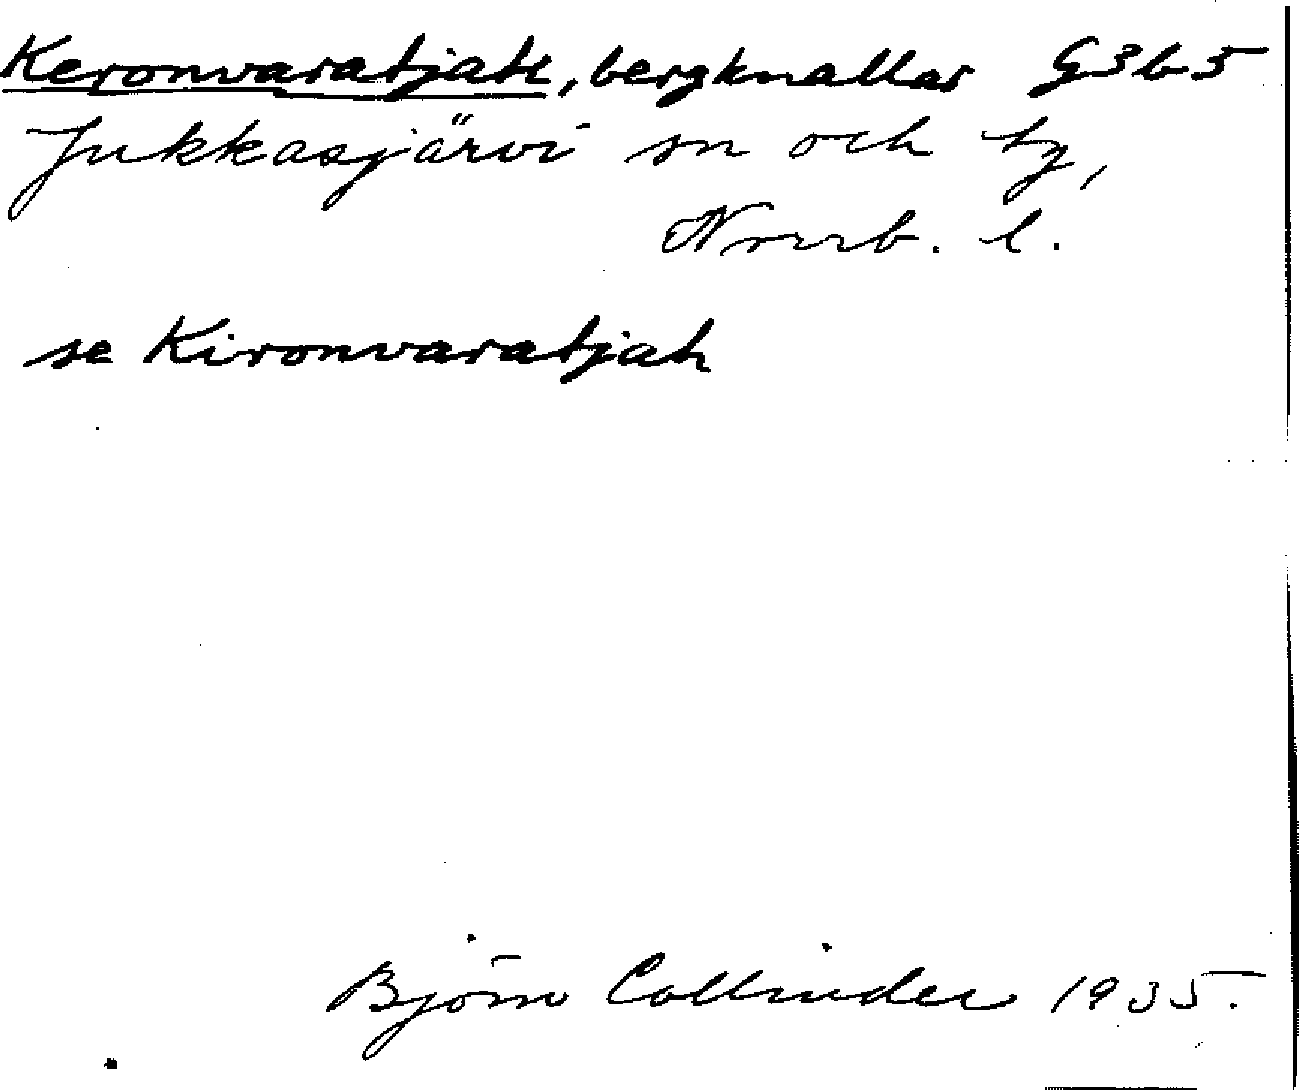 Keronvaratjah, bergknallar G3b5
Jukkasjärvi sn och by,
Norrb. l.
se Kironvaratjah
Björn Collinder 1935.